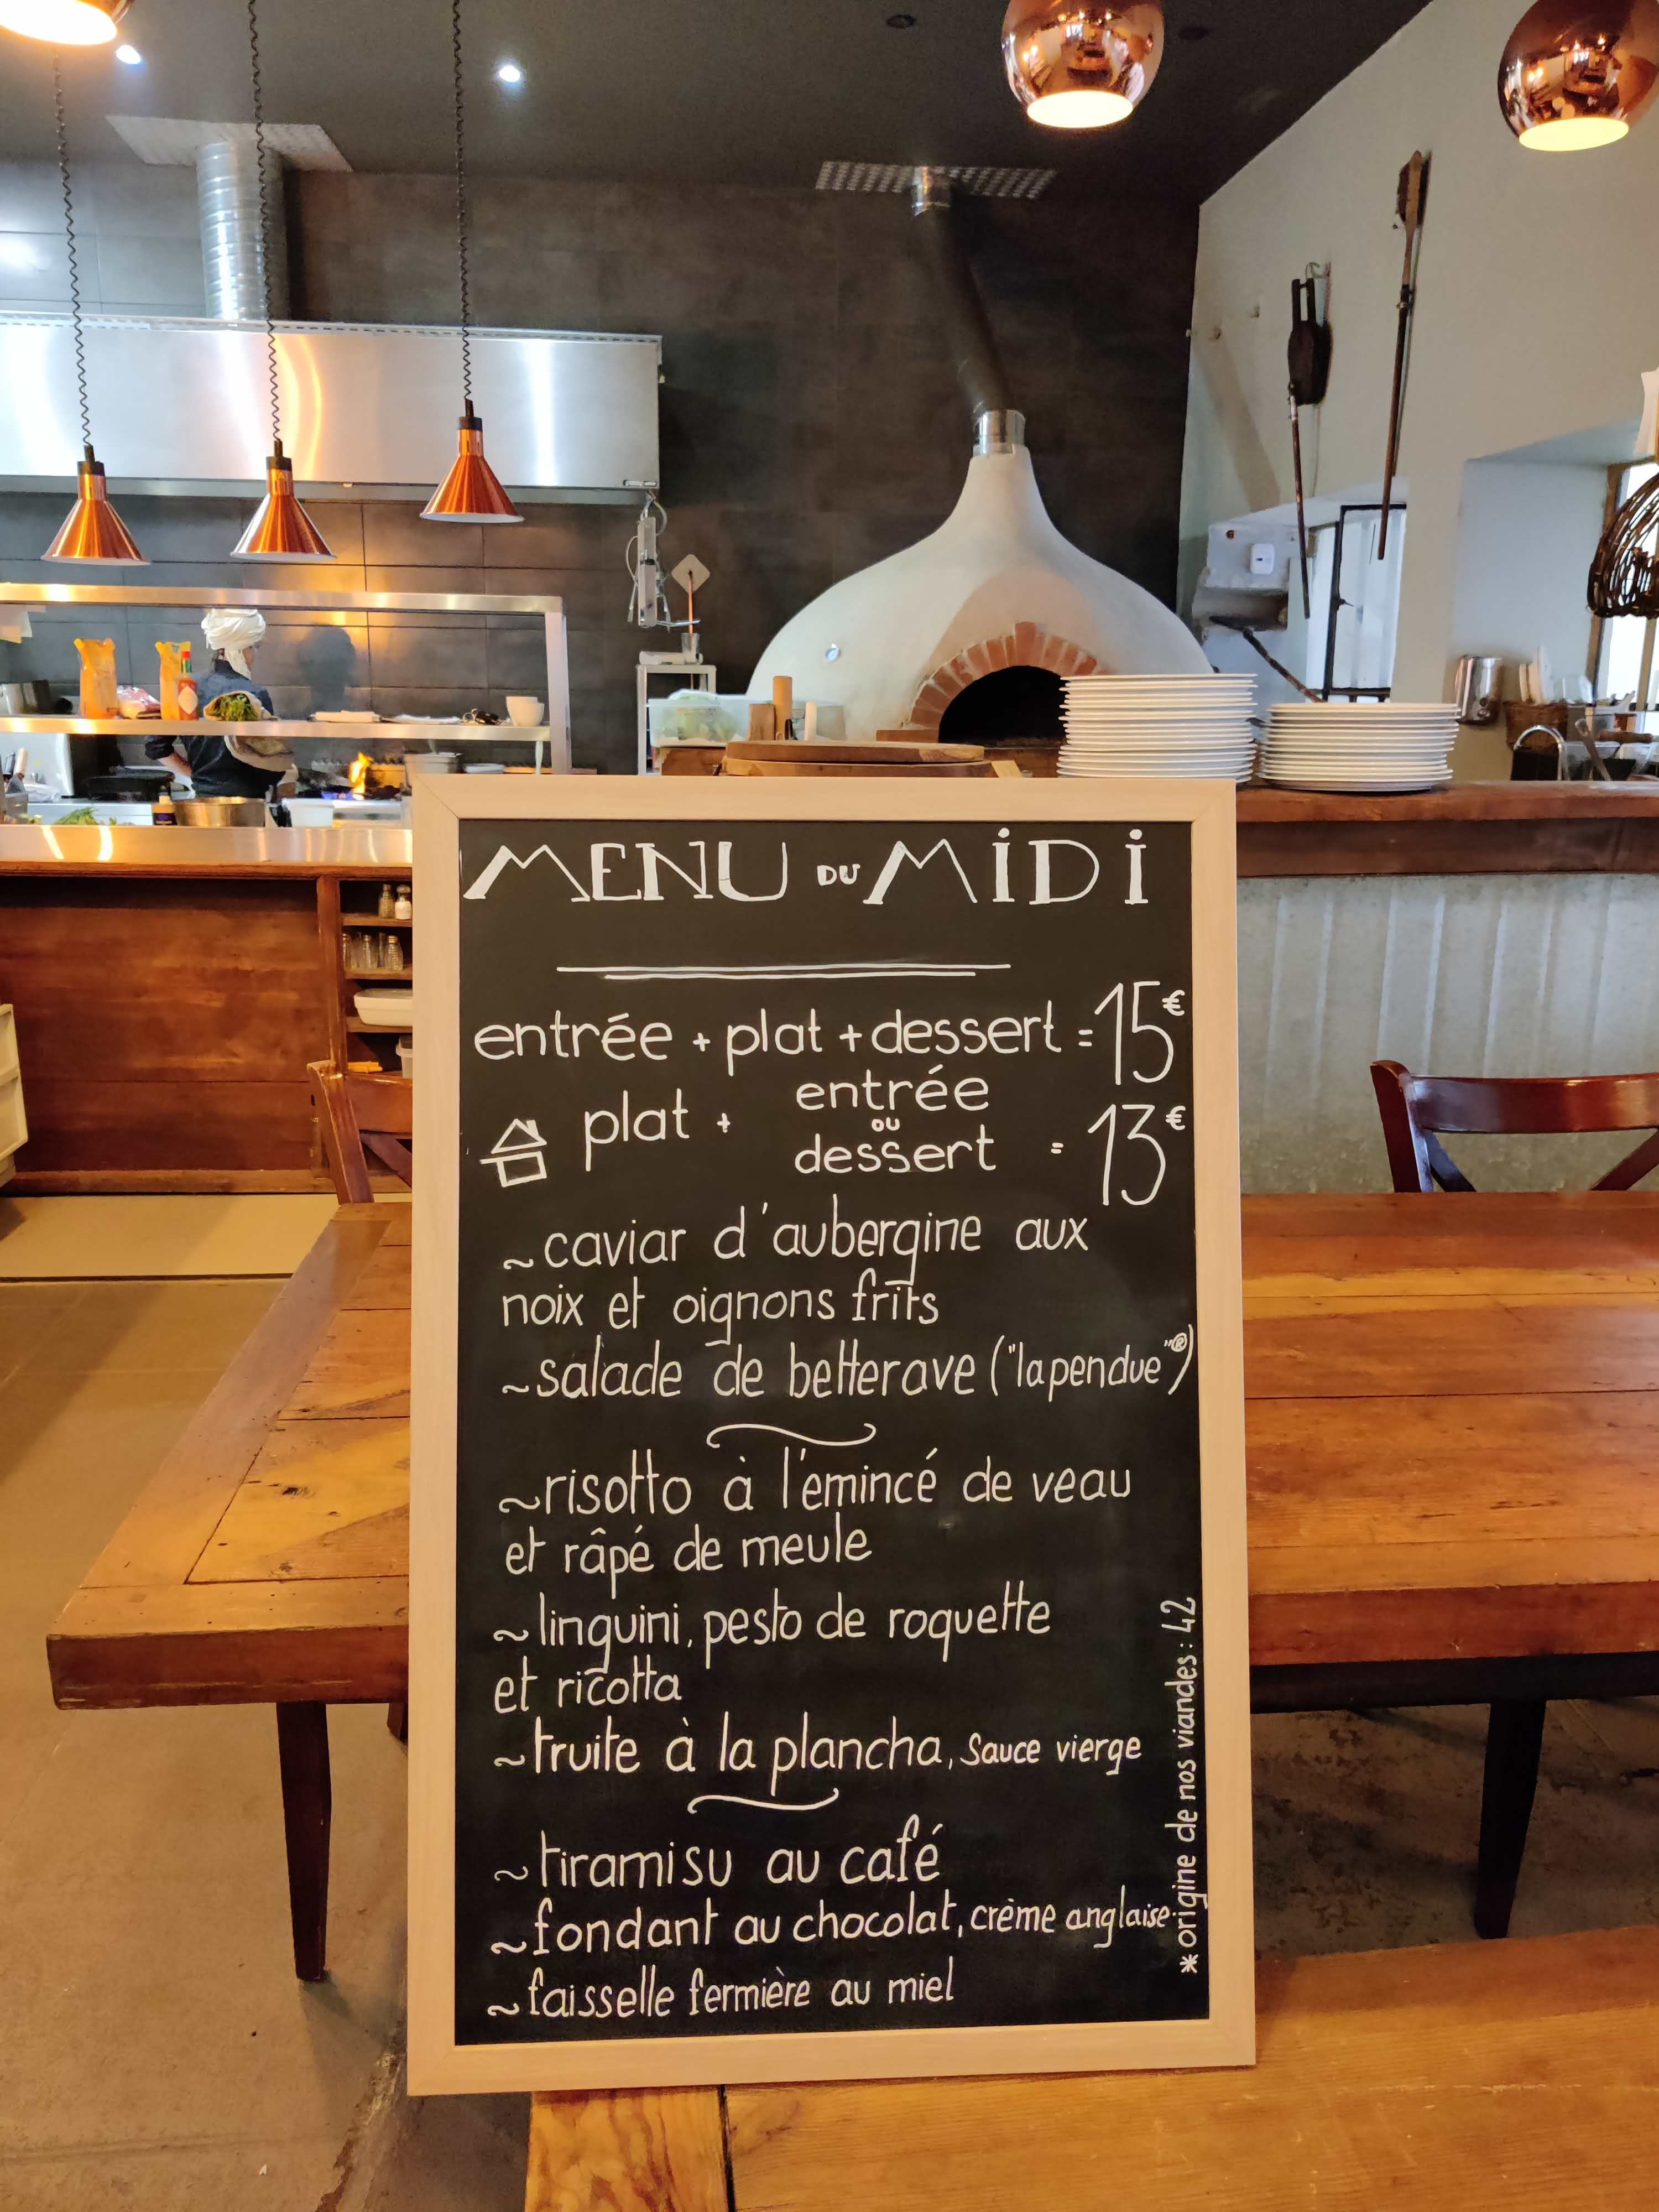 MENU DU MIDI
entrée + plat + dessert = 15€
plat + entrée ou dessert = 13€
~ caviar d'aubergine aux
noix et oignons frits
~ salade de betterave ("lapendue"®)
~ risotto à l'émincé de veau
et râpé de meule
~ linguini, pesto de roquette
et ricotta
~ truite à la plancha, sauce vierge
~ tiramisu au café
~ fondant au chocolat, crème anglaise
~ faisselle fermière au miel
* origine de nos viandes : 42